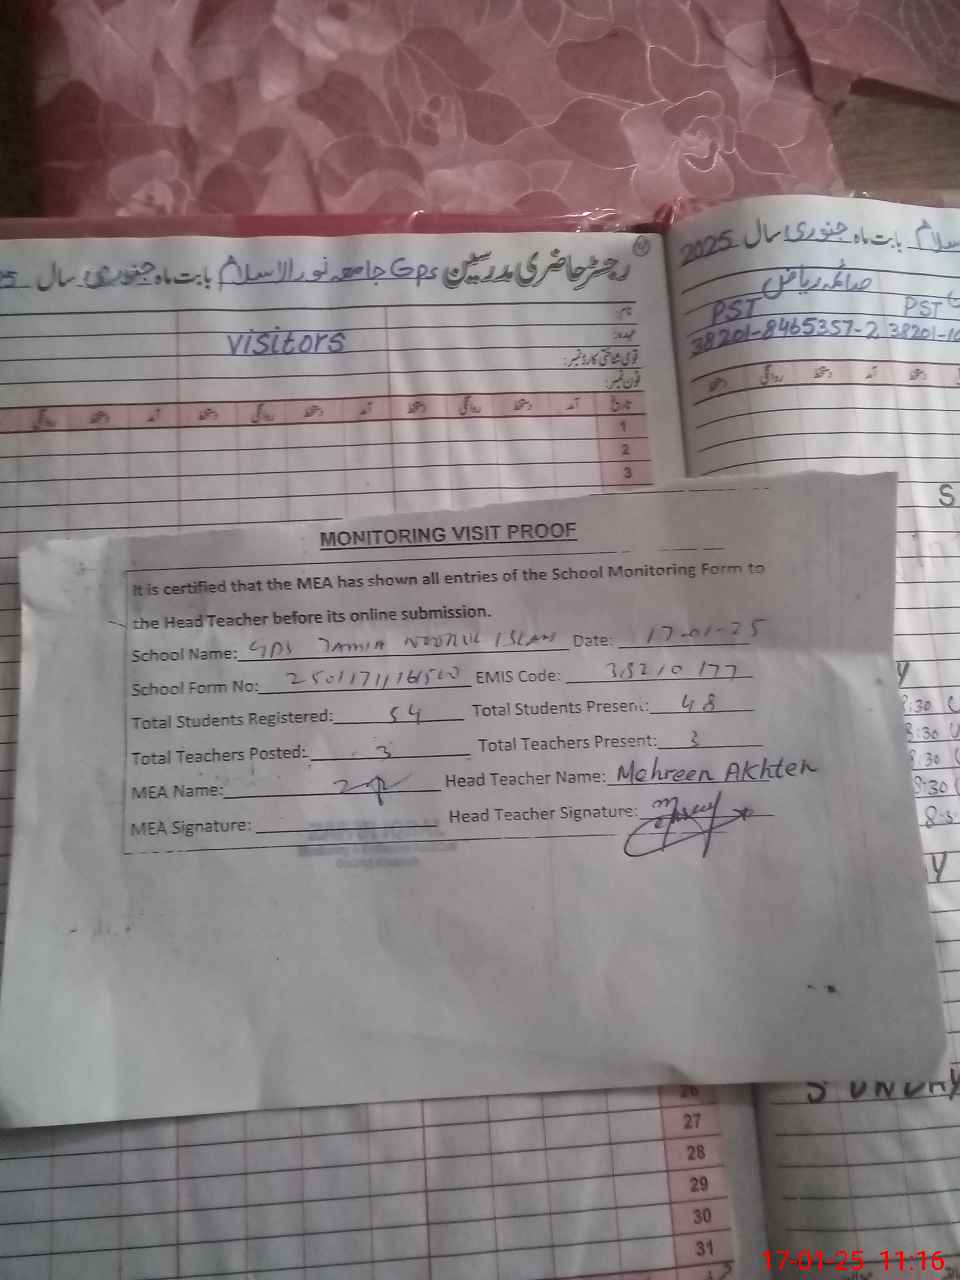 رجسٹر حاضری مدرسین Gps جامعہ نور الاسلام بابت ماہ جنوری سال
نام:
عہدہ:
visitors
قومی شناختی کارڈ نمبر:
فون نمبر:
تاریخ آمد دستخط روانگی دستخط آمد دستخط روانگی دستخط آمد دستخط روانگی
1
2
3
بابت ماہ جنوری سال 2025
صائمہ ریاض
PST PST
38201-8465357-2 38201-10
MONITORING VISIT PROOF
It is certified that the MEA has shown all entries of the School Monitoring Form to
the Head Teacher before its online submission.
School Name: GPS JAMIA NOORUL ISLAM Date: 17-01-25
School Form No: EMIS Code: 38210177
Total Students Registered: 54 Total Students Present: 48
Total Teachers Posted: 3 Total Teachers Present: 3
MEA Name: Head Teacher Name: Mehreen Akhter
MEA Signature: Head Teacher Signature:
8:30
8:30
8:30
8:30
SUNDAY
26
27
28
29
30
31
17-01-25 11:16